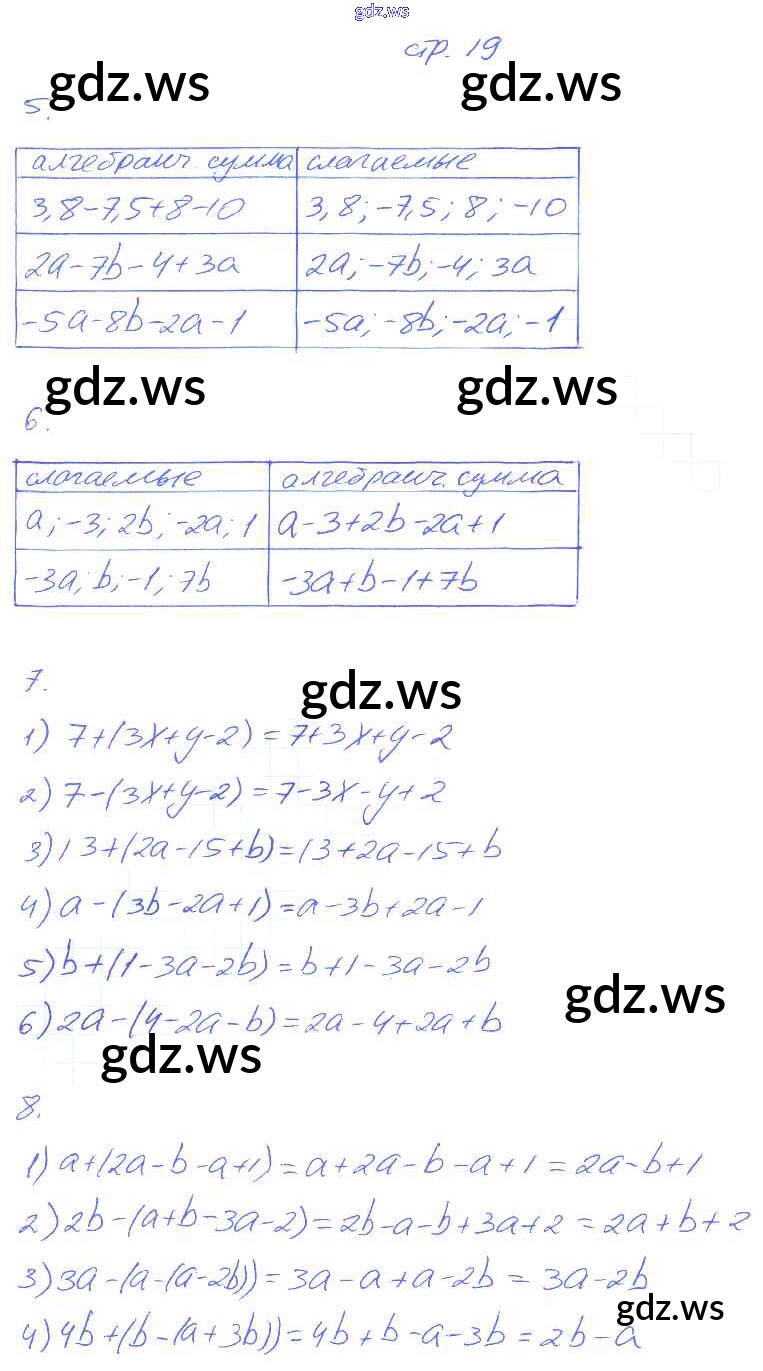 gdz.ws
стр. 19
gdz.ws gdz.ws
5.
алгебраич. сумма слагаемые
3,8-7,5+8-10 3,8; -7,5; 8; -10
2a-7b-4+3a 2a; -7b; -4; 3a
-5a-8b-2a-1 -5a; -8b; -2a; -1
gdz.ws gdz.ws
6.
слагаемые алгебраич. сумма
a; -3; 2b; -2a; 1 a-3+2b-2a+1
-3a; b; -1; 7b -3a+b-1+7b
7.
gdz.ws
1) 7+(3x+y-2)=7+3x+y-2
2) 7-(3x+y-2)=7-3x-y+2
3) 13+(2a-15+b)=13+2a-15+b
4) a-(3b-2a+1)=a-3b+2a-1
5) b+(1-3a-2b)=b+1-3a-2b
gdz.ws
6) 2a-(4-2a-b)=2a-4+2a+b
gdz.ws
8.
1) a+(2a-b-a+1)=a+2a-b-a+1=2a-b+1
2) 2b-(a+b-3a-2)=2b-a-b+3a+2=2a+b+2
3) 3a-(a-(a-2b))=3a-a+a-2b=3a-2b
gdz.ws
4) 4b+(b-(a+3b))=4b+b-a-3b=2b-a